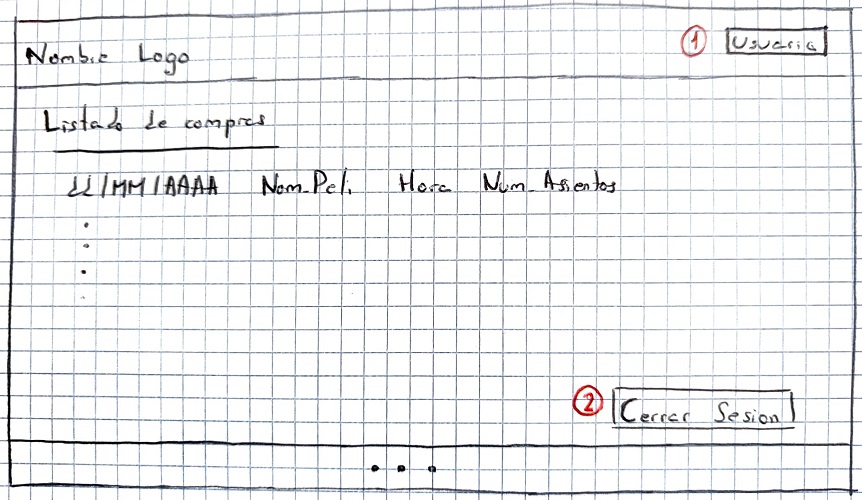 Nombre Logo
1 Usuario
Listado de compras
dd/MM/AAAA Nom_Peli Hora Num_Asientos
2 Cerrar Sesion